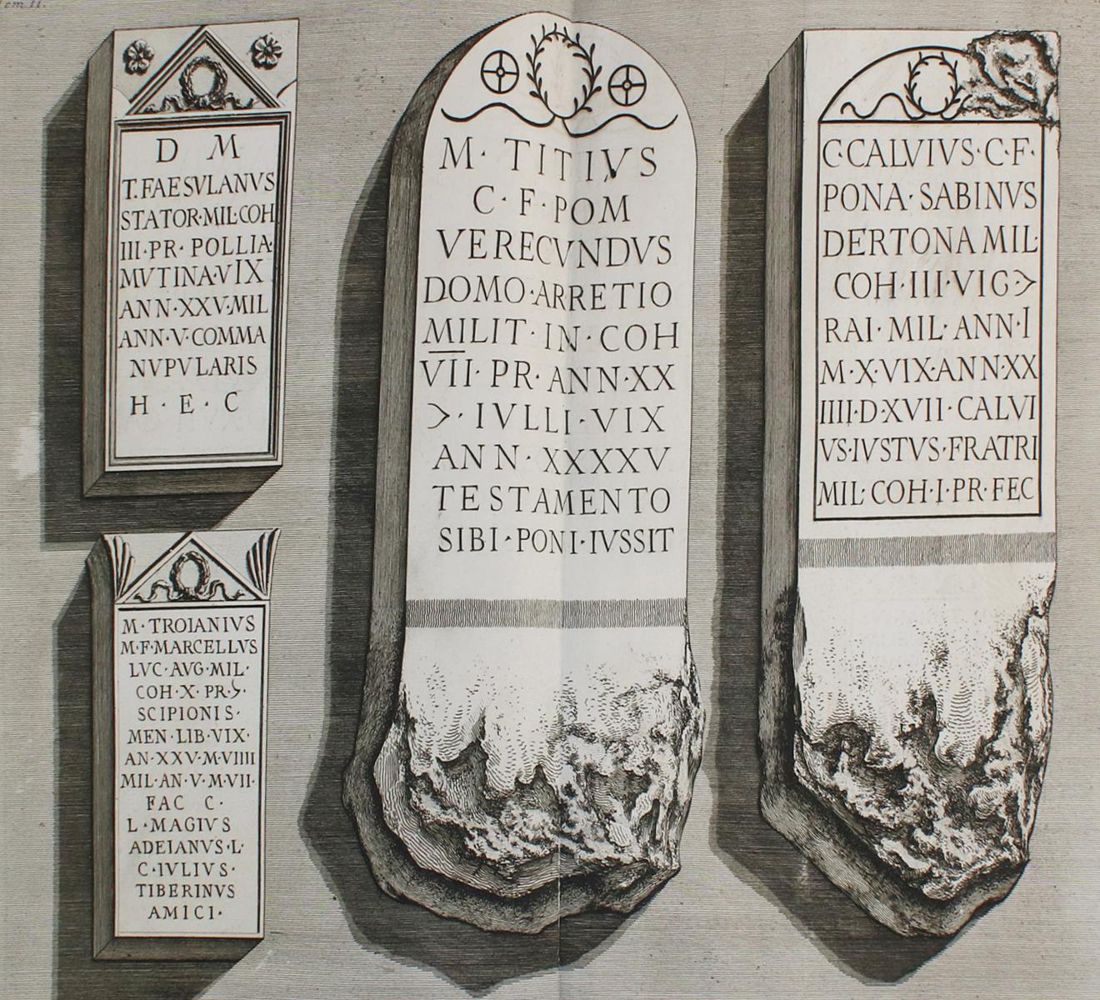 Tom II.
D M
T.FAESVLANVS
STATOR·MIL·COH
III·PR·POLLIA·
MVTINA·VIX
ANN·XXV·MIL
ANN·V·COMMA
NVPVLARIS
H·E·C
M·TROIANIVS
M·F·MARCELLVS
LVC·AVG·MIL·
COH·X·PR·Ɔ·
SCIPIONIS·
MEN·LIB·VIX·
AN·XXV·M·VIIII
MIL·AN·V·M·VII·
FAC C·
L·MAGIVS
ADEIANVS·L·
C·IVLIVS·
TIBERINVS
AMICI·
M·TITIVS
C·F·POM
VERECVNDVS
DOMO·ARRETIO
MILIT·IN·COH
V̅I̅I̅·PR·ANN·XX
>·IVLLI·VIX
ANN·XXXXV
TESTAMENTO
SIBI·PONI·IVSSIT
C·CALVIVS·C·F·
PONA·SABINVS
DERTONA MIL·
COH·III·VIG>
RAI·MIL·ANN·I
M·X·VIX·ANN·XX
IIII·D·XVII·CALVI
VS·IVSTVS·FRATRI
MIL·COH·I·PR·FEC